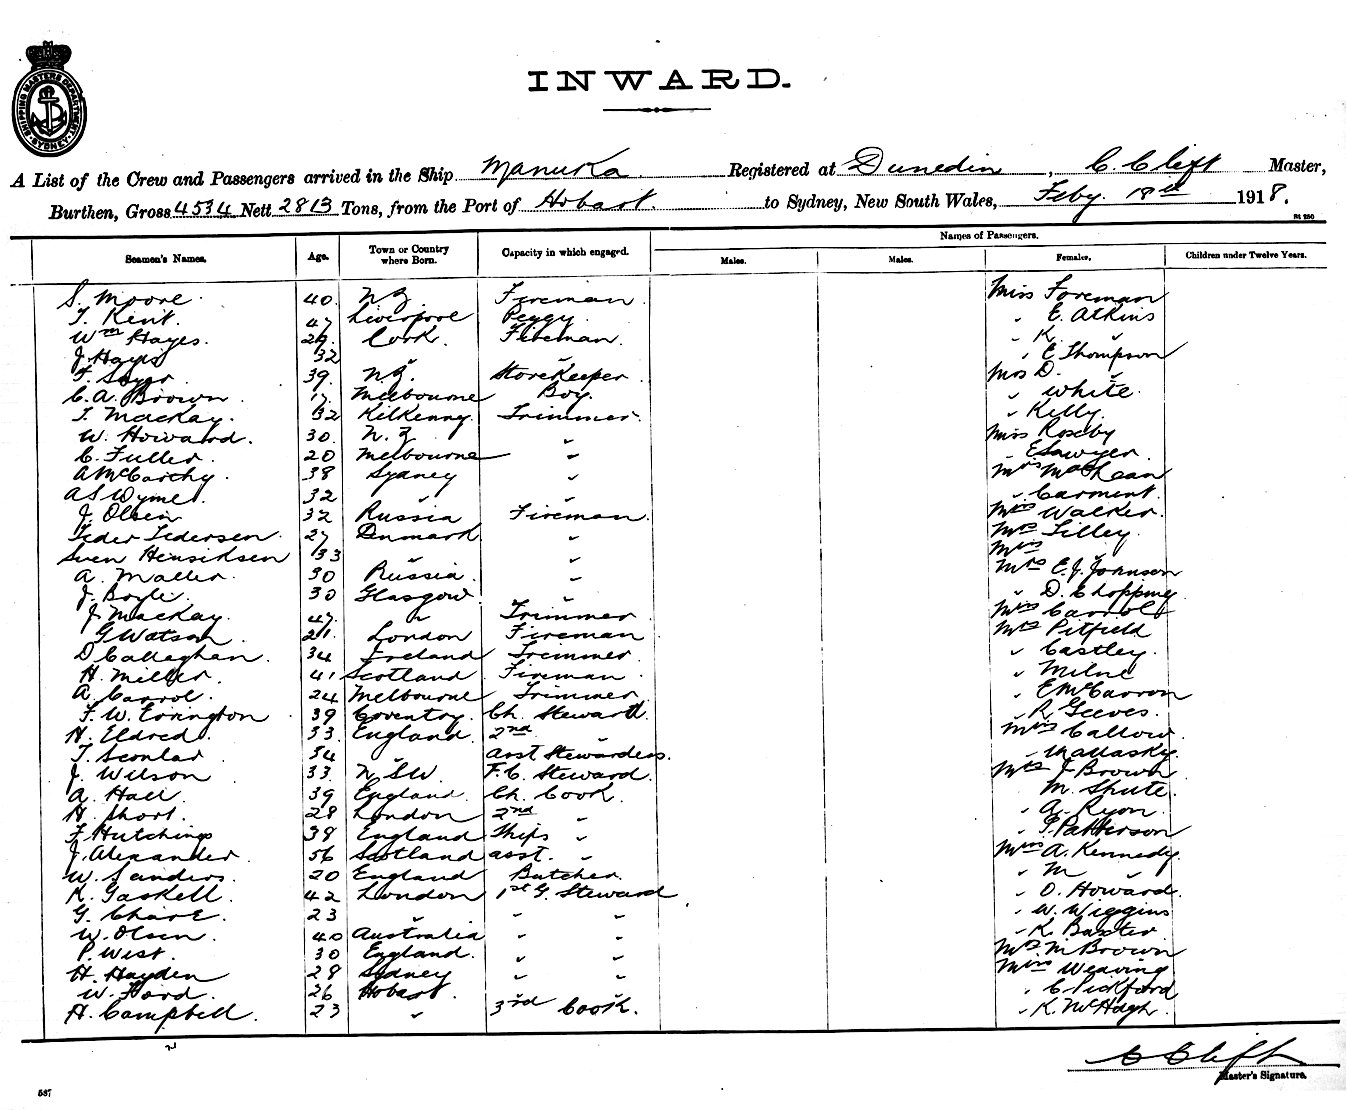 SHIPPING MASTERS DEPARTMENT SYDNEY
INWARD.
A List of the Crew and Passengers arrived in the Ship Manuka Registered at Dunedin, C. Clift Master,
Burthen, Gross 4534 Nett 2813 Tons, from the Port of Hobart. to Sydney, New South Wales, Feby. 18th 1918.
Rt 250
Names of Passengers.
Seamen's Names. Age. Town or Country where Born. Capacity in which engaged. Males. Males. Females. Children under Twelve Years.
S. Moore. 40. N Z. Fireman Miss Foreman
T. Kent. 47 Liverpool Peggy. " E. Atkins
Wm Hayes. 29. Cork. Fireman. " K. "
J. Hayes 32 " " " E Thompson
39. N Z. Storekeeper Mrs D. "
C. A. Brown. 17 Melbourne Boy. " White.
T. MacKay. 32 Kilkenny. Trimmer. " Kelly.
W. Howard. 30. N. Z. " Miss Roseby
C. Fuller. 20 Melbourne " E Sawyer.
A McCarthy. 38 Sydney " Mrs MacLean
A S Wyme. 32 " " " Garment.
J. Olsen 32 Russia Fireman. Miss Walker.
Peder Pedersen. 27 Denmark " Mrs Lilley.
Sven Henriksen 33 " " Miss "
A. Moller. 30 Russia. " Mrs E. J. Johnson
J. Boyle. 30 Glasgow. " " D. Chopping
J. MacKay. 47. " Trimmer Miss Carrol
G Watson 21. London Fireman Mrs Pitfield
D Callaghan. 34 Ireland Trimmer. " Castley.
H. Miller. 41 Scotland Fireman " Milne
A. Carrol. 24 Melbourne Trimmer " E McCarron
F. W. Errington 39 Coventry. Ch. Steward. " R Geeves.
H. Eldred. 33. England. 2nd " Miss Callow.
T. Scoular 34 " asst Stewardess. " Mallasky.
J. Wilson 33. N S W F. C. Steward. Mrs J Brown
A. Hall 39 England. Ch. Cook. M. Shute.
H. Short. 28 London 2nd " " A. Ryon
F. Hutchings 39 England Ships " " Patterson
J. Alexander. 56 Scotland asst. " Miss A. Kennedy.
W. Sanders. 20 England Butcher. " M "
K. Gaskell. 42 London 1st G. Steward " O. Howard.
G. 23 " " " " W. Wiggins
W. Olsen. 40 Australia " " " K. Baxter.
P. West. 30 England. " " Mrs. M Brown
H. Hayden 28 Sydney " " Miss Weaving
W. Ford. 26 Hobart. " " " C. Pickford
H. Campbell. 23 " 3rd Cook. " K. McHugh.
C Clift
Master's Signature.
537